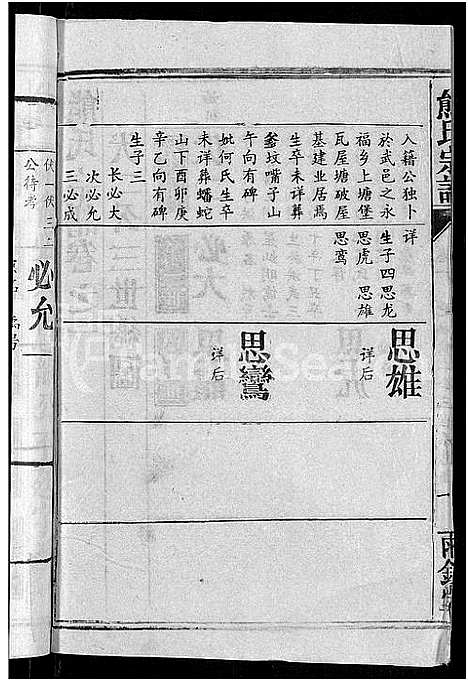 熊氏宗譜
入籍公独卜
於武邑之永
福乡上塘堡
瓦屋塘破屋
基建业居焉
生卒未详葬
釜坟嘴子山
午向有碑
妣何氏生卒
未详葬蟠蛇
山下酉卯庚
辛乙向有碑
生子三
长必大
次必允
三必成
详
生子四思龙
思虎 思雄
思鸾
思雄
详后
思鸞
详后
必允
公待考